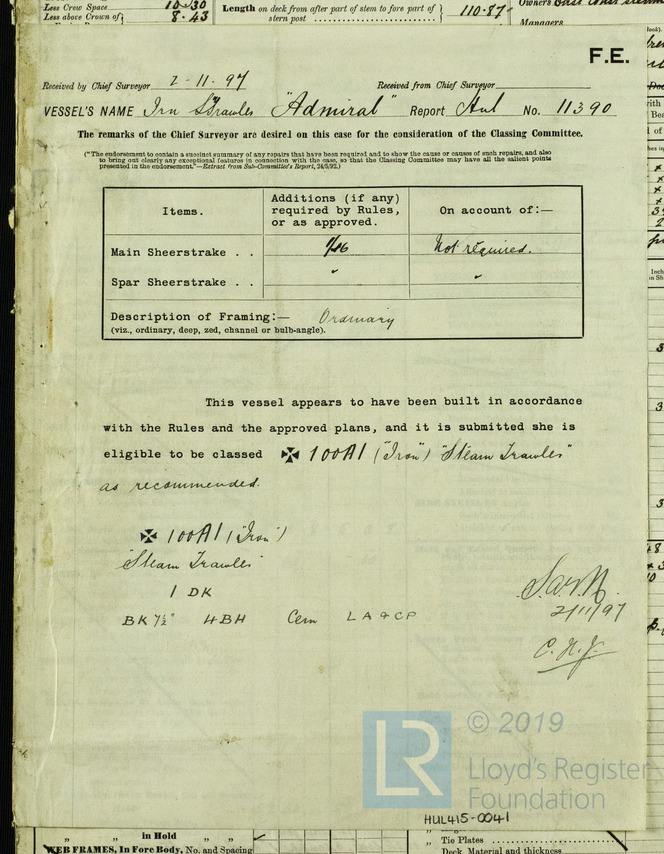 Less Crew Space 10.30
Less above Crown of 8.43
Length on deck from after part of stem to fore part of
stern post 110.87
Owners
Managers
F.E.
Received by Chief Surveyor 2-11-97 Received from Chief Surveyor
VESSEL'S NAME Irn S Trawler "Admiral" Report Hul No. 11390
The remarks of the Chief Surveyor are desired on this case for the consideration of the Classing Committee.
("The endorsement to contain a succinct summary of any repairs that have been required and to show the cause or causes of such repairs, and also
to bring out clearly any exceptional features in connection with the case, so that the Classing Committee may have all the salient points
presented in the endorsement."—Extract from Sub-Committee's Report, 24/5/92.)
Items. Additions (if any) required by Rules, or as approved. On account of:—
Main Sheerstrake . . Not required.
Spar Sheerstrake . . " "
Description of Framing:— Ordinary
(viz., ordinary, deep, zed, channel or bulb-angle).
This vessel appears to have been built in accordance
with the Rules and the approved plans, and it is submitted she is
eligible to be classed ✠ 100A1 ("Iron") "Steam Trawler"
as recommended.
✠ 100A1 ("Iron")
"Steam Trawler"
1 DK
BK 7½" 4BH Cem LA&CP
2/11/97
© 2019
LR
Lloyd's Register
Foundation
HUL415-0041
" in Hold " "
WEB FRAMES, In Fore Body, No. and Spacing
" Tie Plates
Deck, Material and thickness